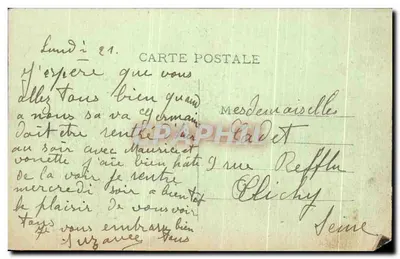 Lundi 21.
CARTE POSTALE
J'espère que vous
allez tous bien quand
a nous sa va Germain
doit etre rentré
au soir avec Maurice et
vonette j'aie bien hate
de la voir je rentre
mercredi soir a bientot
le plaisir de vous voir
tous
Je vous embrasse bien
Suzanne tous
Mesdemoiselles
Cadet
9 rue
Clichy
Seine